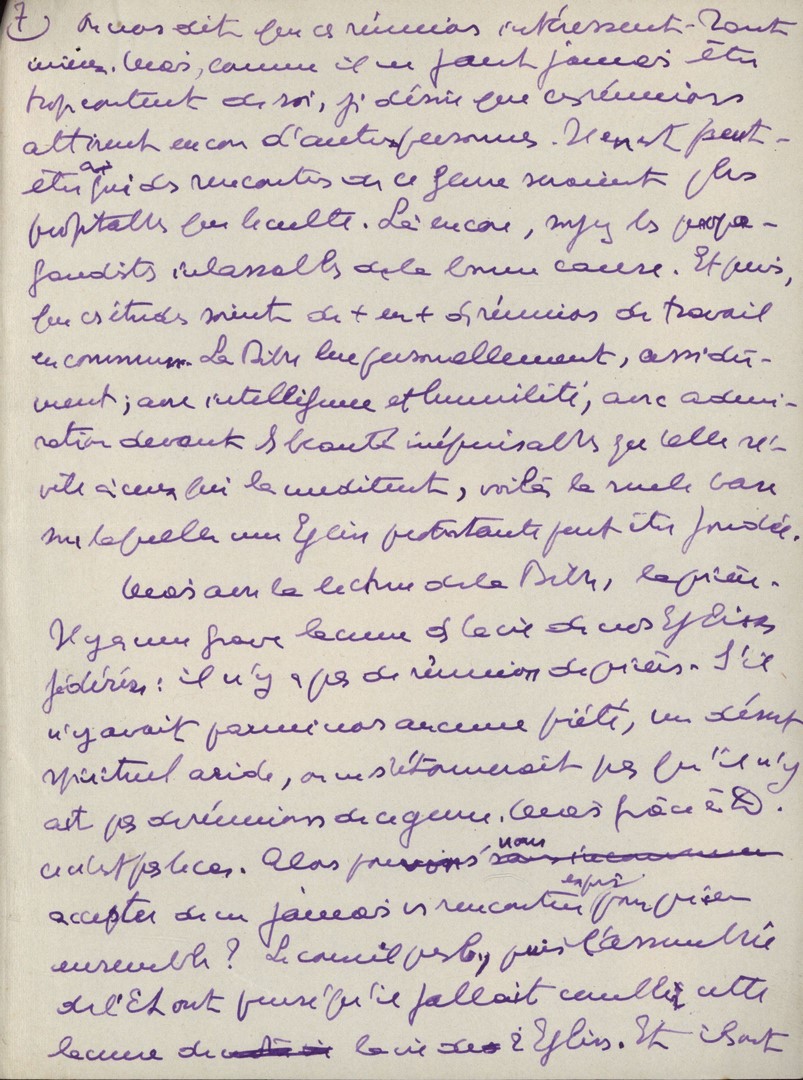 7) On nous dit que ces réunions intéressent - Tant
mieux. Mais, comme il ne faut jamais être
trop content de soi, je désire que ces réunions
attirent encore d'autres personnes. Il en est peut-
être à qui des rencontres de ce genre seraient plus
profitables que le culte. Là encore, soyez les propa-
gandistes inlassables de la bonne cause. Et puis,
que ces études soient de + en + des réunions de travail
en commun. La Bible lue personnellement, assidû-
ment ; avec intelligence et humilité, avec admi-
ration devant les beautés inépuisables qu'elle ré-
vèle à ceux qui la méditent, voilà la seule base
sur laquelle une Eglise protestante peut être fondée.
Mais avec la lecture de la Bible, la prière.
Il y a une grave lacune ds la vie de nos Eglises
fédérées : il n'y a pas de réunion de prières. S'il
n'y avait parmi nous aucune piété, un désert
spirituel aride, on ne s'étonnerait pas qu'il n'y
ait pas de réunions de ce genre. Mais grâce à D.
ce n'est pas le cas. Alors nous
accepter de ne jamais ns rencontrer exprès pour prier
ensemble ? Le conseil presb., puis l'assemblée
de l'E ont pensé qu'il fallait combler cette
lacune de la vie de l'Eglise. Et ils ont